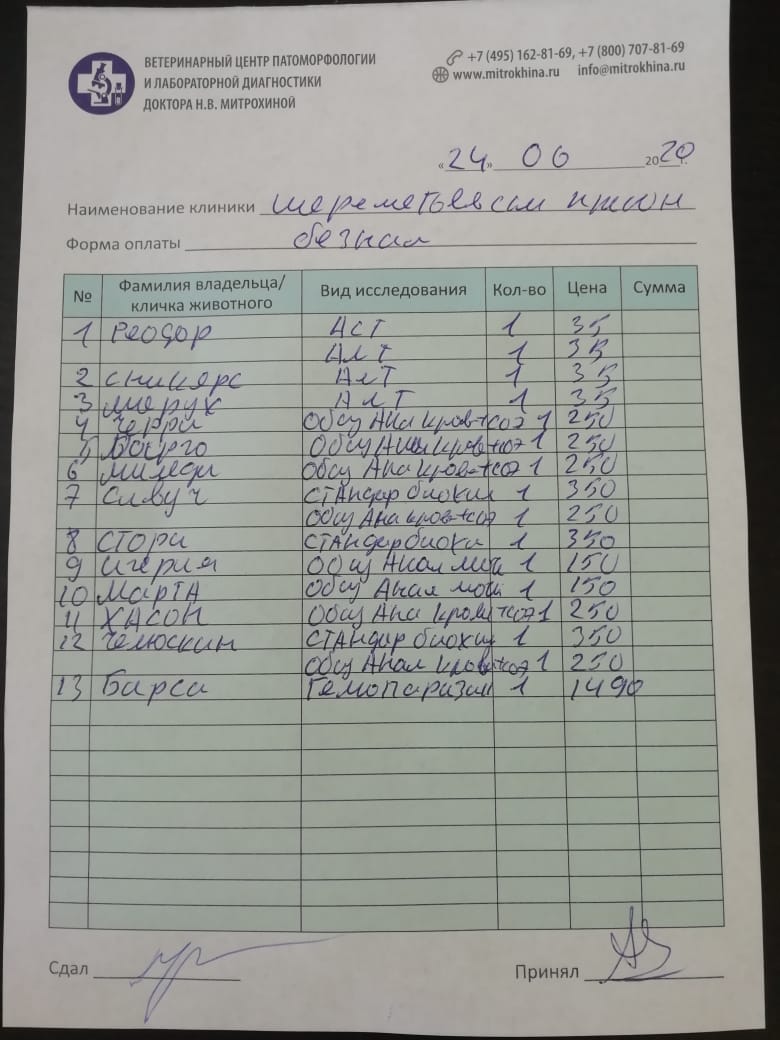 ВЕТЕРИНАРНЫЙ ЦЕНТР ПАТОМОРФОЛОГИИ
И ЛАБОРАТОРНОЙ ДИАГНОСТИКИ
ДОКТОРА Н.В. МИТРОХИНОЙ
+7 (495) 162-81-69, +7 (800) 707-81-69
www.mitrokhina.ru info@mitrokhina.ru
«24» 06 2020 г.
Наименование клиники
Форма оплаты безнал
№ Фамилия владельца/ кличка животного Вид исследования Кол-во Цена Сумма
1 АСТ 1 35
АЛТ 1 35
2 Сникерс АЛТ 1 35
3 АЛТ 1 35
4 Черри Общ Ана кров+соэ 1 250
5 Общ Ана кров+соэ 1 250
6 Общ Ана кров+соэ 1 250
7 стандар биохи 1 350
Общ Ана кров+соэ 1 250
8 Стори стандар биохи 1 350
9 Общ Анал мочи 1 150
10 Марта Общ Анал мочи 1 150
11 Хасон Общ Ана крови+соэ 1 250
12 Челюскин стандар биохи 1 350
Общ Анал кров+соэ 1 250
13 Барса Гемопаразит 1 1490
Сдал Принял